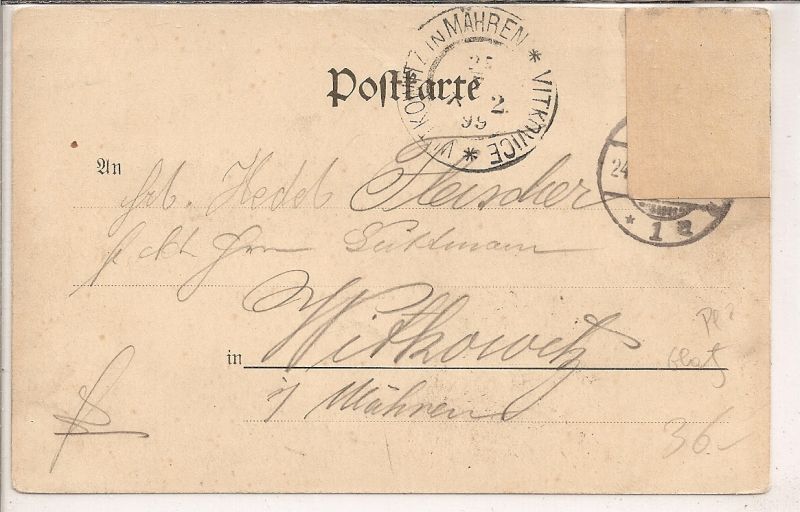 WITKOWITZ IN MÄHREN * VITKOVICE *
25
2
99
Postkarte
24
* 1 a
An
Frl. Hedel Fleischer
Hrn
Witkowitz
in
i/ Mähren
Glatz
36-